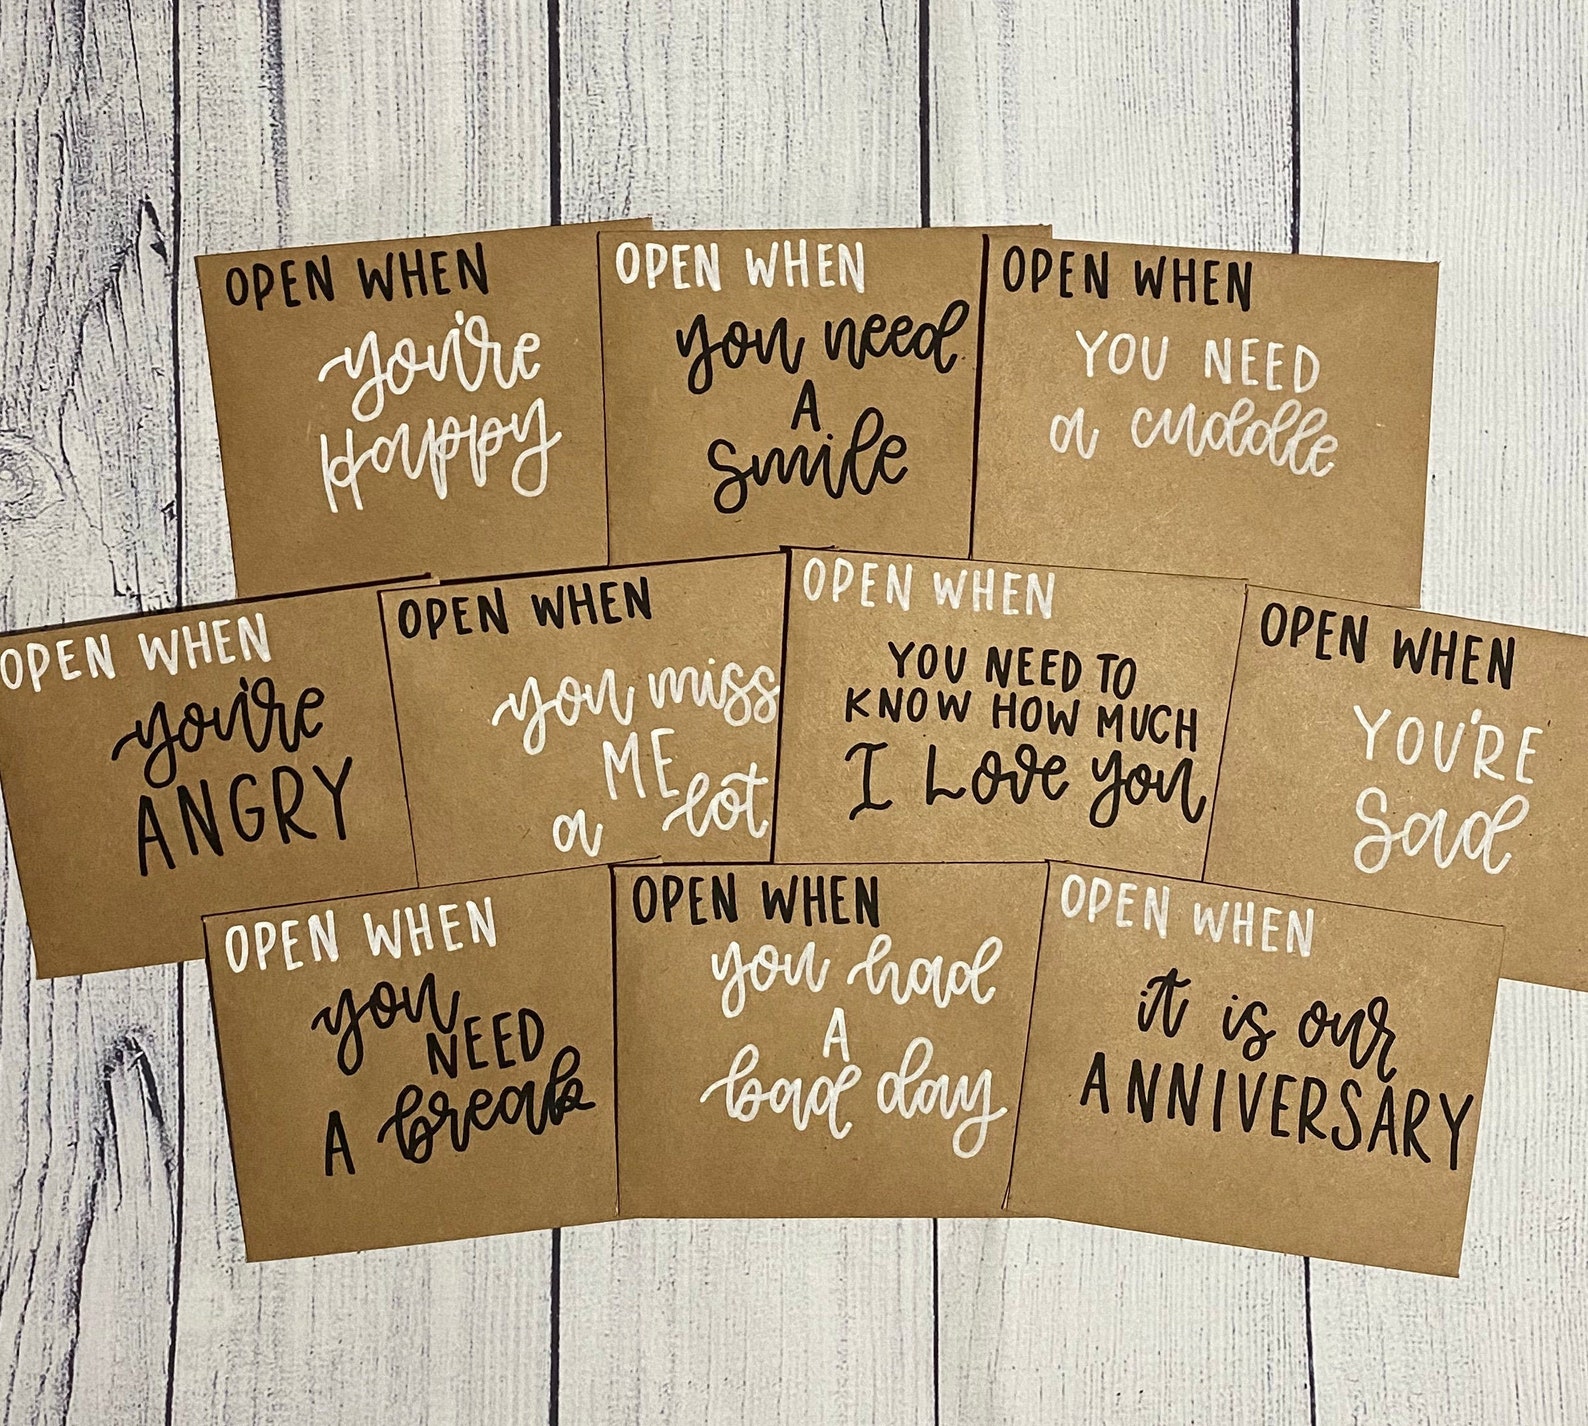 OPEN WHEN
you're
Happy
OPEN WHEN
you need
A
smile
OPEN WHEN
YOU NEED
a cuddle
OPEN WHEN
you're
ANGRY
OPEN WHEN
you miss
ME
a lot
OPEN WHEN
YOU NEED TO
KNOW HOW MUCH
I Love you
OPEN WHEN
YOU'RE
Sad
OPEN WHEN
you
NEED
A break
OPEN WHEN
you had
A
bad day
OPEN WHEN
it is our
ANNIVERSARY